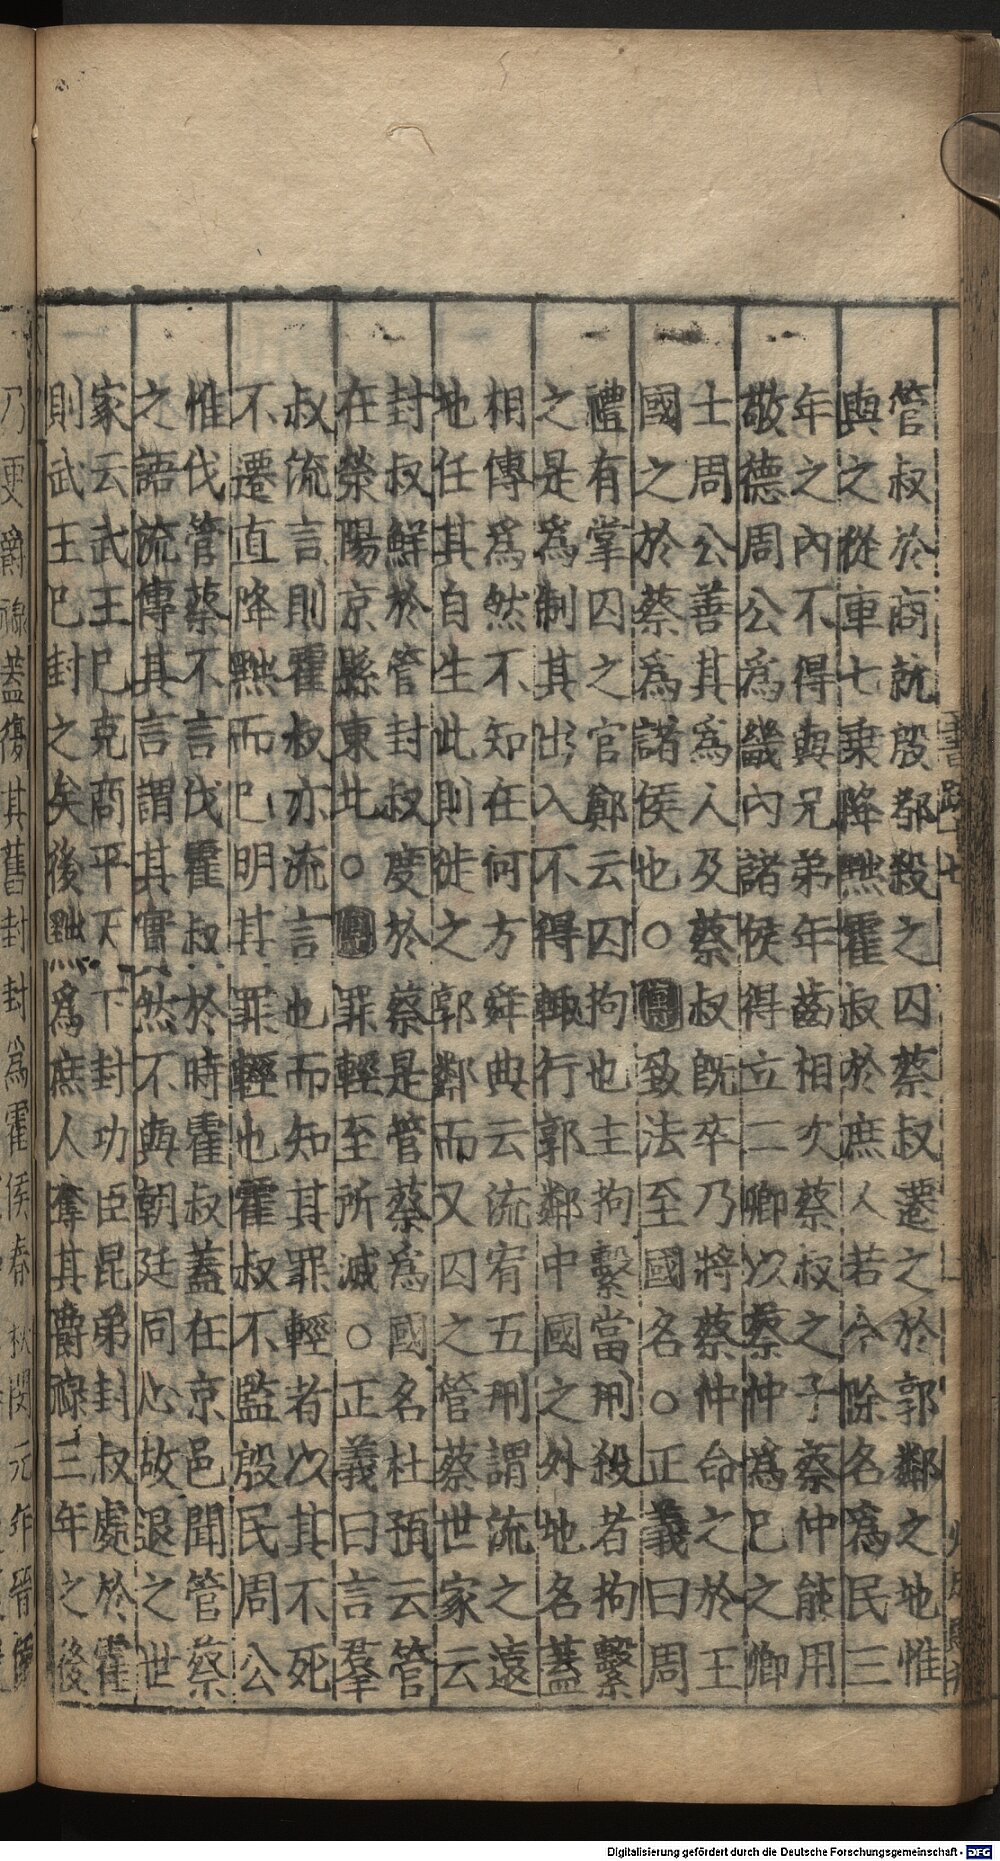 管叔於商就殷都殺之囚蔡叔遷之於郭鄰之地惟
與之從車七乗降黜霍叔於庶人若今除名爲民三
年之內不得與兄弟年齒相次蔡叔之子蔡仲能用
敬德周公爲畿內諸侯得立二卿以蔡仲爲己之卿
士周公善其爲人及蔡叔既卒乃將蔡仲命之於王
國之於蔡爲諸侯也○致法至國名○正義曰周
禮有掌囚之官鄭云囚拘也主拘繫當刑殺者拘繫
之是爲制其出入不得輒行郭鄰中國之外地名蓋
相傳爲然不知在何方舜典云流宥五刑謂流之遠
地任其自生此則徙之郭鄰而又囚之管蔡世家云
封叔鮮於管封叔度於蔡是管蔡爲國名杜預云管
在滎陽京縣東北○罪輕至所滅○正義曰言羣
叔流言則霍叔亦流言也而知其罪輕者以其不死
不遷直降黜而巳明其罪輕也霍叔不監殷民周公
惟伐管蔡不言伐霍叔於時霍叔蓋在京邑聞管蔡
之語流傳其言謂其實然不與朝廷同心故退之世
家云武王巳克商平天下封功臣昆弟封叔處於霍
則武王巳封之矣後黜爲庶人奪其爵祿三年之後
乃更爵祿蓋復其舊封封爲霍侯春秋閔元年晉